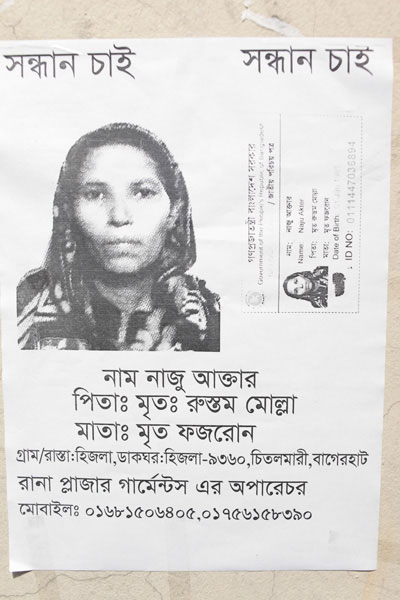 সন্ধান চাই
সন্ধান চাই
গণপ্রজাতন্ত্রী বাংলাদেশ সরকার
Government of the People's Republic of Bangladesh
/ জাতীয় পরিচয় পত্র
নাম: নাজু আক্তার
Name: Naju Akter
পিতা: মৃত রুস্তম মোল্লা
মাতা: মৃত ফজরোন
Date of Birth:
ID NO: 0111447036894
নাম নাজু আক্তার
পিতাঃ মৃতঃ রুস্তম মোল্লা
মাতাঃ মৃত ফজরোন
গ্রাম/রাস্তা:হিজলা,ডাকঘর:হিজলা-৯৩৬০,চিতলমারী,বাগেরহাট
রানা প্লাজার গার্মেন্টস এর অপারেচর
মোবাইলঃ ০১৬৮১৫০৬৪০৫,০১৭৫৬১৫৮৩৯০